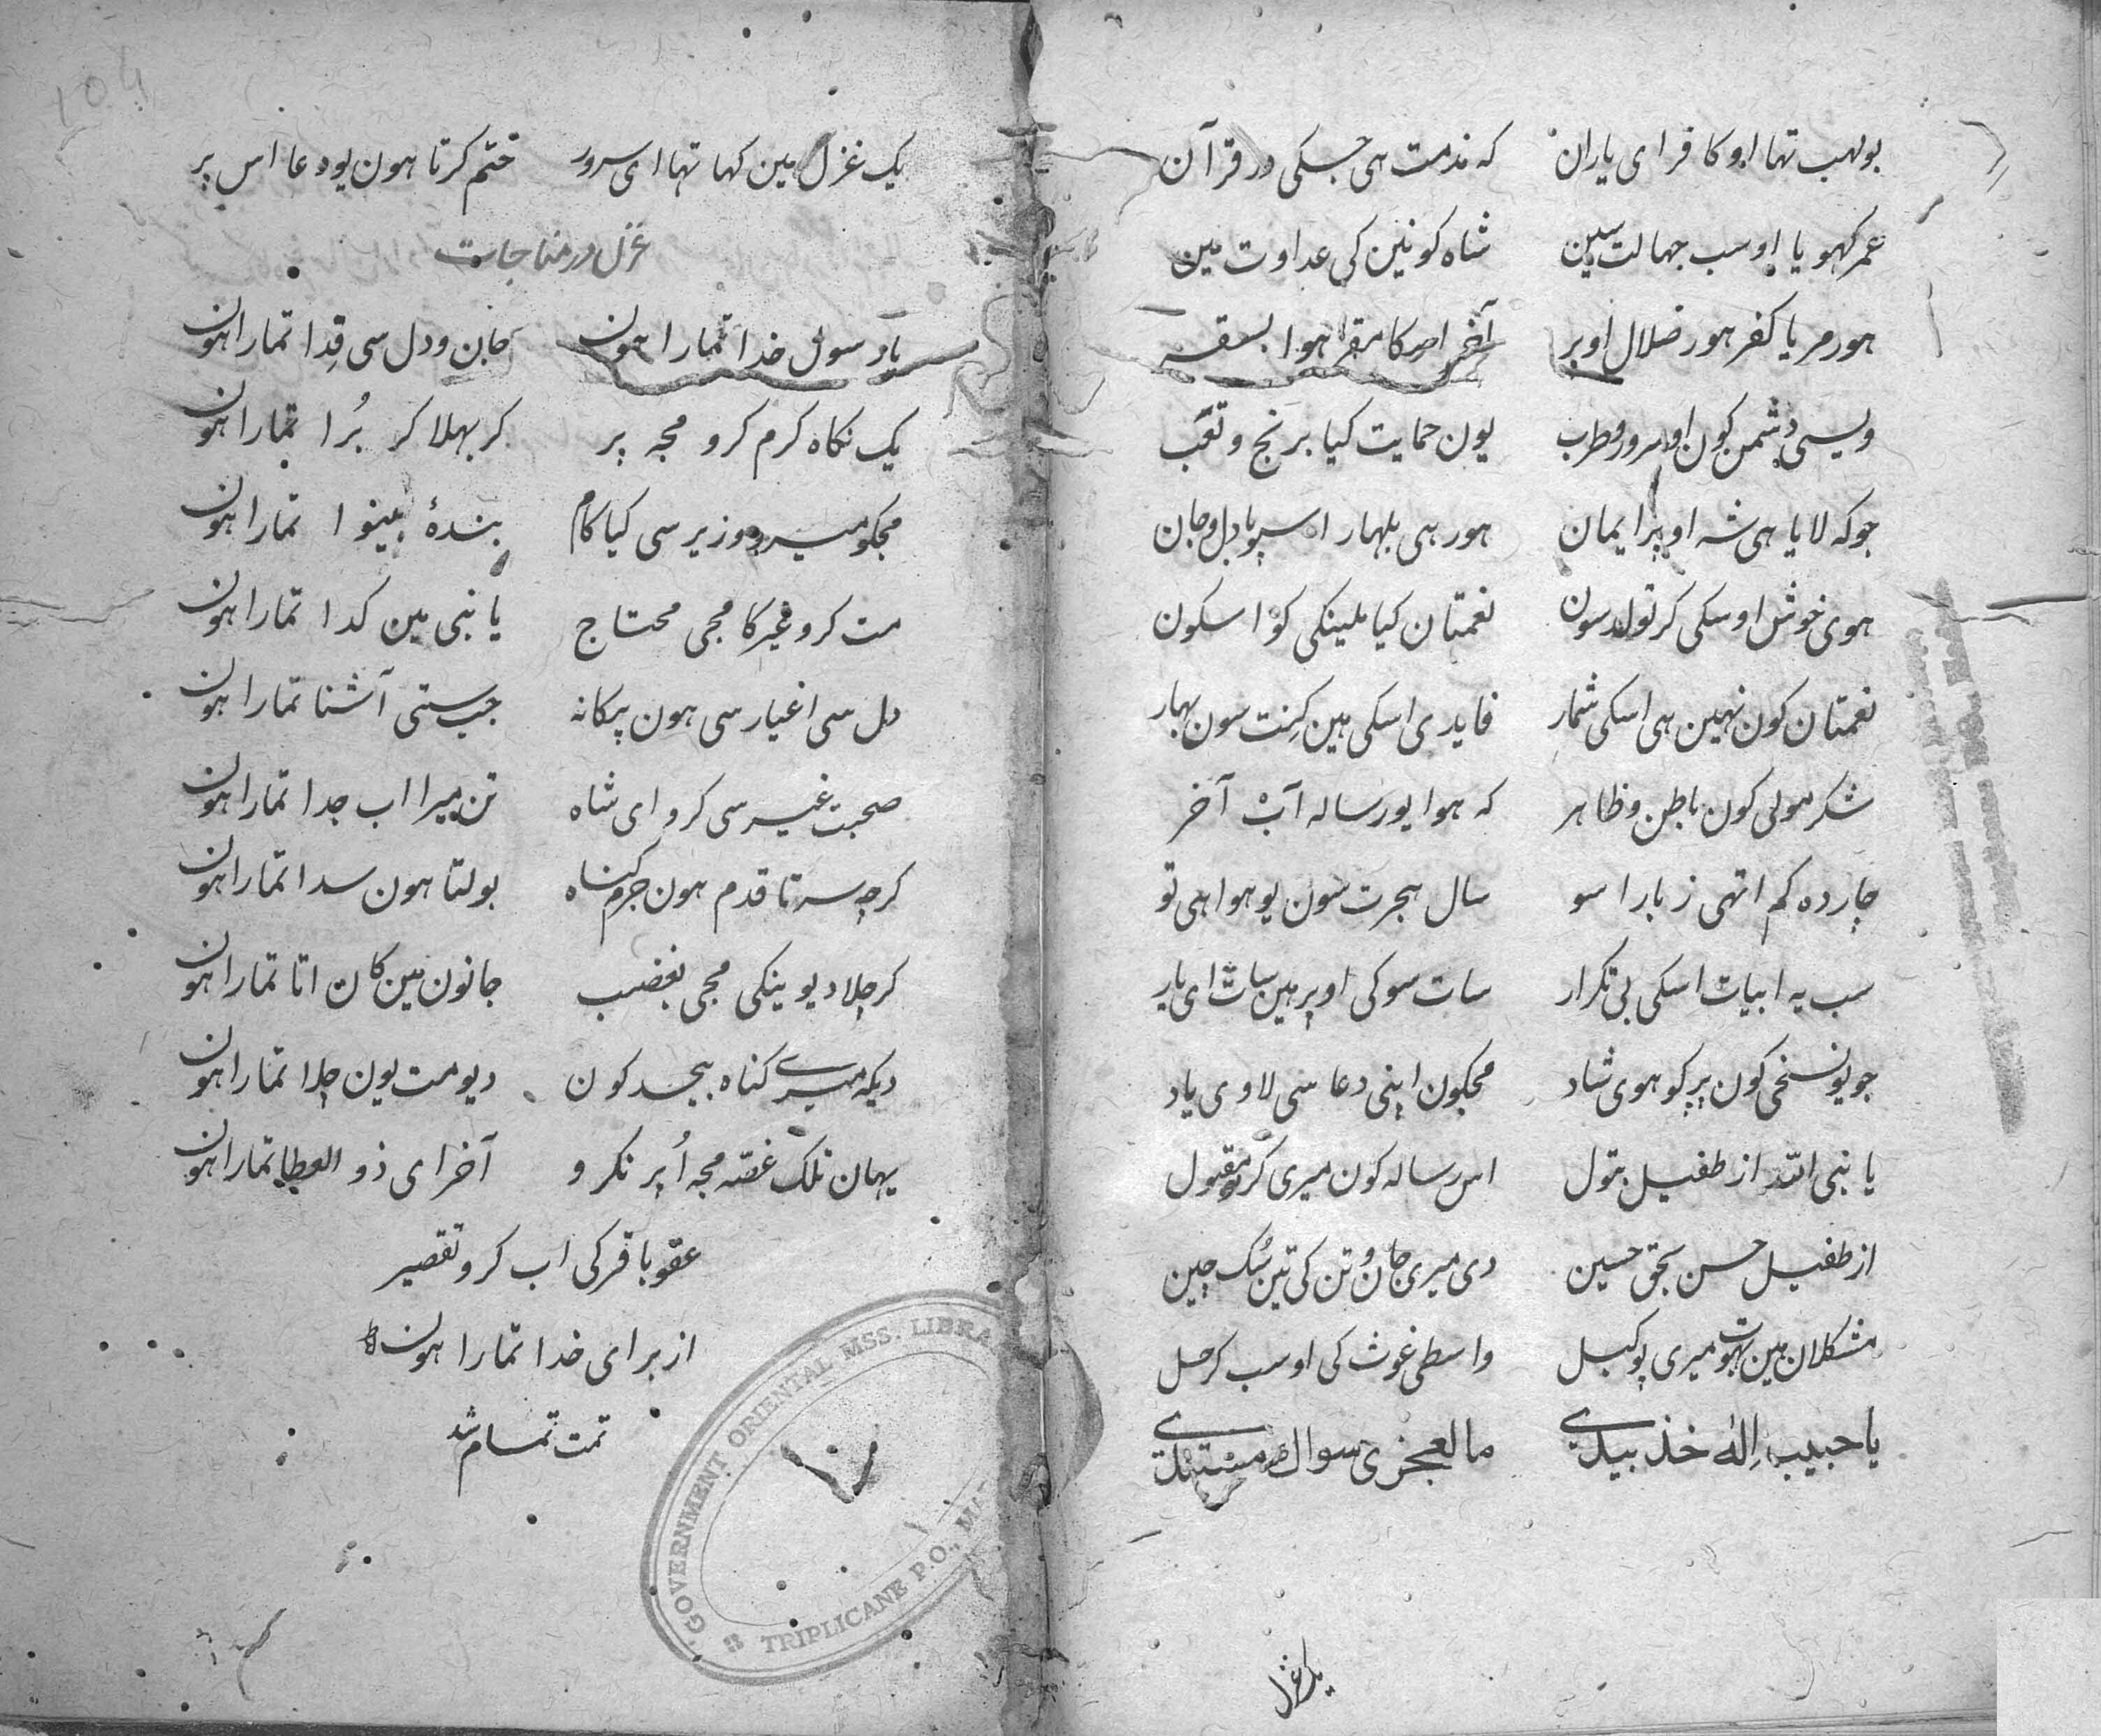 بولہب تھا ابو کافر ای یاران کہ مذمت ہی جسکی در قرآن
عمر کھویا او سب جہالت سین شاہ کونین کی عداوت مین
ہور مریا کفر ہور ضلال اوپر آخر اسکا مقر ہوا بسقر
ویسی دشمن کون او سرور طرب یون حمایت کیا برنج و تعب
جو کہ لایا ہی شہ اوپر ایمان ہور ہی بلہار اسپو با دل و جان
ہوی خوش اوسکی کر تولد سون نعمتان کیا ملینکی کؤ اسکون
نعمتان کون نہین ہی اسکی شمار فایدی اسکی ہین کنت سون بہار
شکر مولی کون باطن و ظاہر کہ ہوا یو رسالہ اب آخر
چار دہ کم اتھی ز بارا سو سال ہجرت سون یو ہوا ہی تو
سب یہ ابیات اسکی بی تکرار سات سو کی اوپر ہین سات ای یار
جو یو نسخی کون پڑ کو ہوی شاد مجکون اپنی دعا سی لاوی یاد
یا نبی اللہ از طفیل بتول اس رسالہ کون میری کر تو مقبول
از طفیل حسن بحق حسین دی میری جان و تن کی تین سک چین
مشکلان ہین بہوت میری پو کبل واسطی غوث کی او سب کر حل
یا حبیب الٰہ خذ بیدی ما لعجزی سواك مستندی
یک غزل
یک غزل مین کہا تھا ای سرور ختم کرتا ہون یو دعا اس پر
غزل در مناجات
یا رسول خدا تمارا ہون جان و دل سی فدا تمارا ہون
یک نکاہ کرم کرو مجہ پر کر بہلا کر بُرا تمارا ہون
مجکو میر و وزیر سی کیا کام بندۂ بینوا تمارا ہون
مت کرو غیر کا مجی محتاج یا نبی مین کدا تمارا ہون
دل سی اغیار سی ہون بیکانہ جب ستی آشنا تمارا ہون
صحبت غیر سی کرو ای شاہ تن میرا اب جدا تمارا ہون
کرچہ سر تا قدم ہون جرم کناہ بولتا ہون سدا تمارا ہون
کر چلا دیوینکی مجی بغضب جانون مین کان اتا تمارا ہون
دیکہ میرے کناہ بیحد کون دیو مت یون چلا تمارا ہون
یہان تلک غصہ مجہ اُپر نکرو آخر ای ذو العطا تمارا ہون
عفو باقر کی اب کرو تقصیر
از برای خدا تمارا ہون
تمت تمام شد
GOVERNMENT ORIENTAL MSS. LIBRA
TRIPLICANE P.O., MA